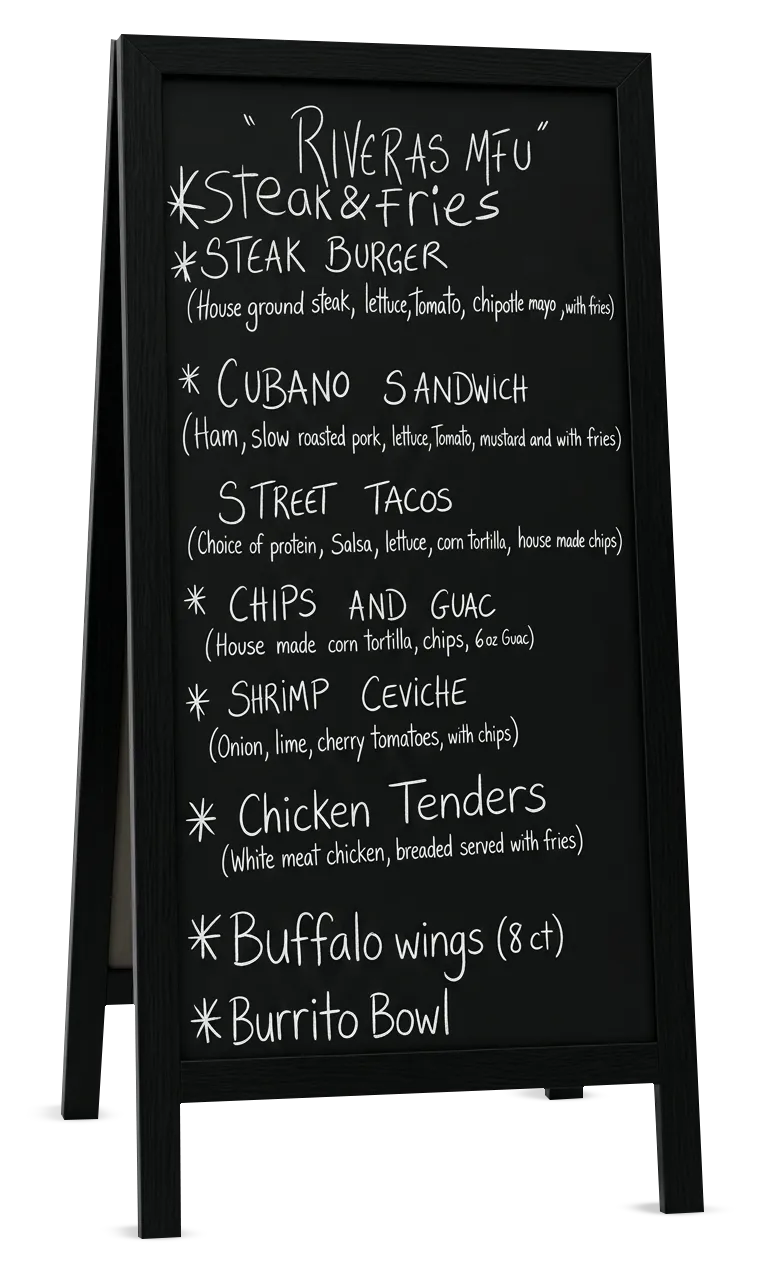 " RIVERAS MFU"
*Steak & Fries
*STEAK BURGER
(House ground steak, lettuce, Tomato, chipotle mayo ,with fries)
* CUBANO SANDWICH
(Ham, slow roasted pork, lettuce, Tomato, mustard and with fries)
STREET TACOS
(Choice of protein, Salsa, lettuce, corn tortilla, house made chips)
* CHIPS AND GUAC
(House made corn tortilla, chips, 6 oz Guac)
* SHRIMP CEVICHE
(Onion, lime, cherry tomatoes, with chips)
* Chicken Tenders
(White meat chicken, breaded served with fries)
*Buffalo wings (8 ct)
*Burrito Bowl